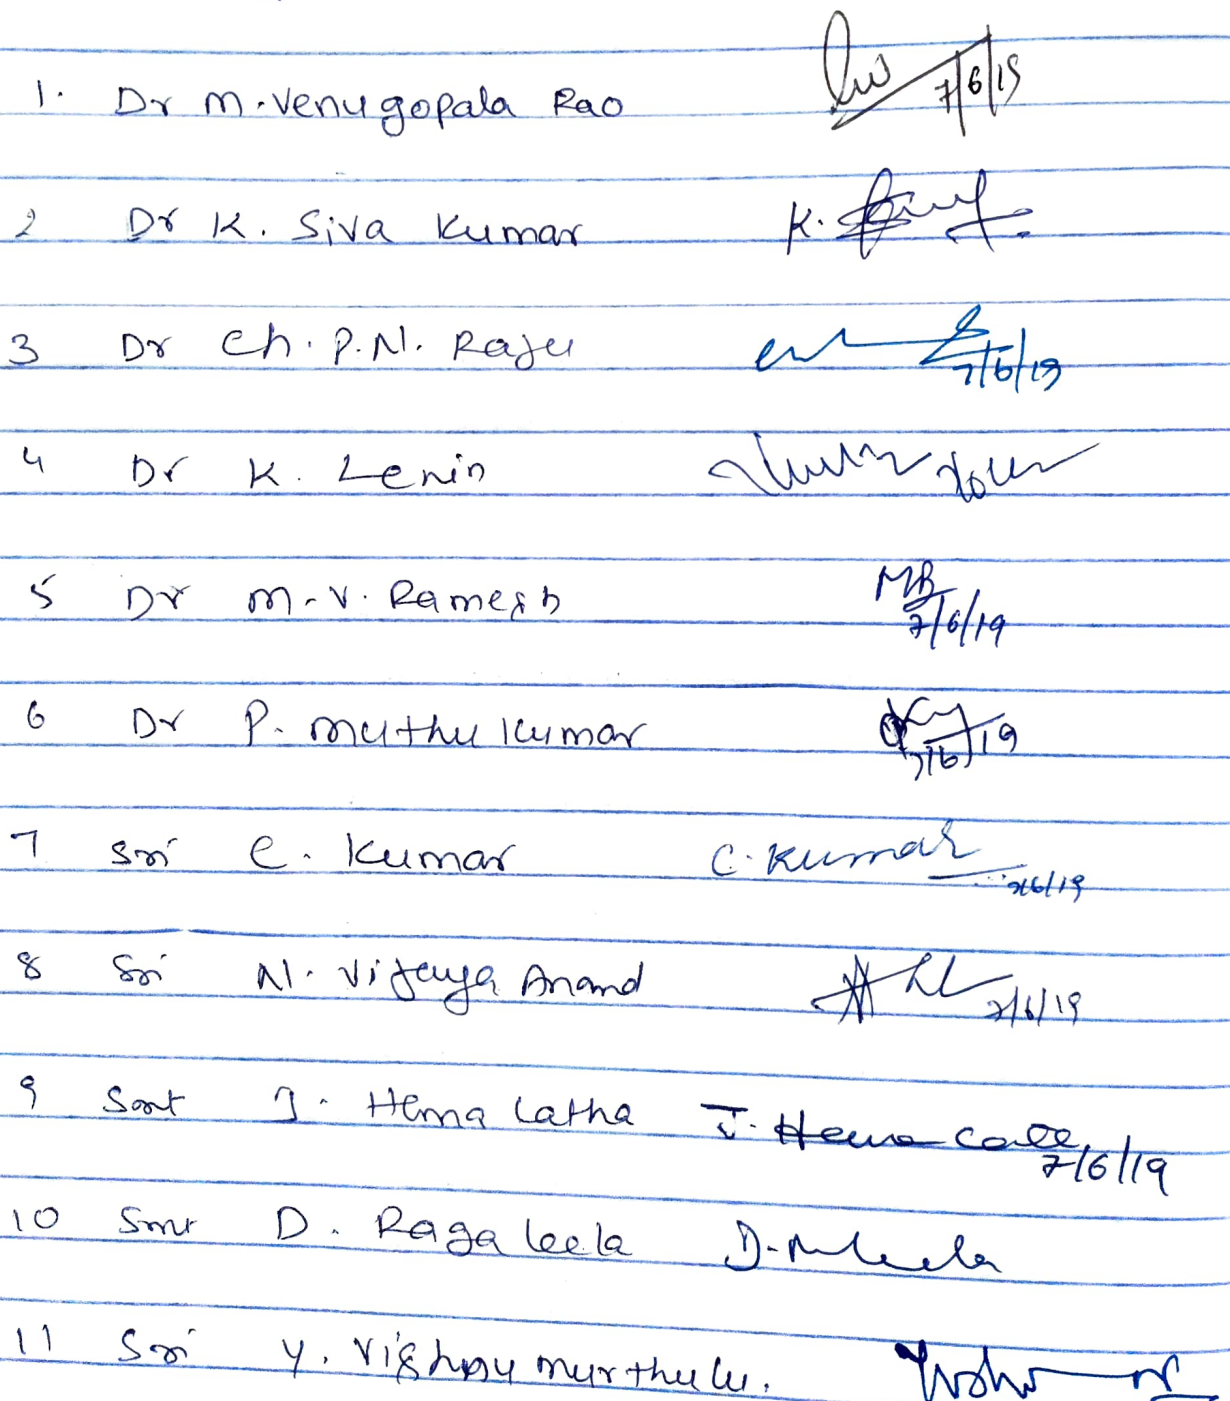 1. Dr M. Venugopala Rao 7/6/19
2 Dr K. Siva Kumar K.
3 Dr Ch. P.N. Raju 7/6/19
4 Dr K. Lenin
5 Dr M.V. Ramesh MR 7/6/19
6 Dr P. Muthu Kumar 7/6/19
7 Sri C. Kumar C. Kumar 7/6/19
8 Sri N. Vijaya Anand 7/6/19
9 Smt J. Hema Latha J. Hema Latha 7/6/19
10 Smt D. Raga leela D. Leela
11 Sri Y. Vishnu murthulu.